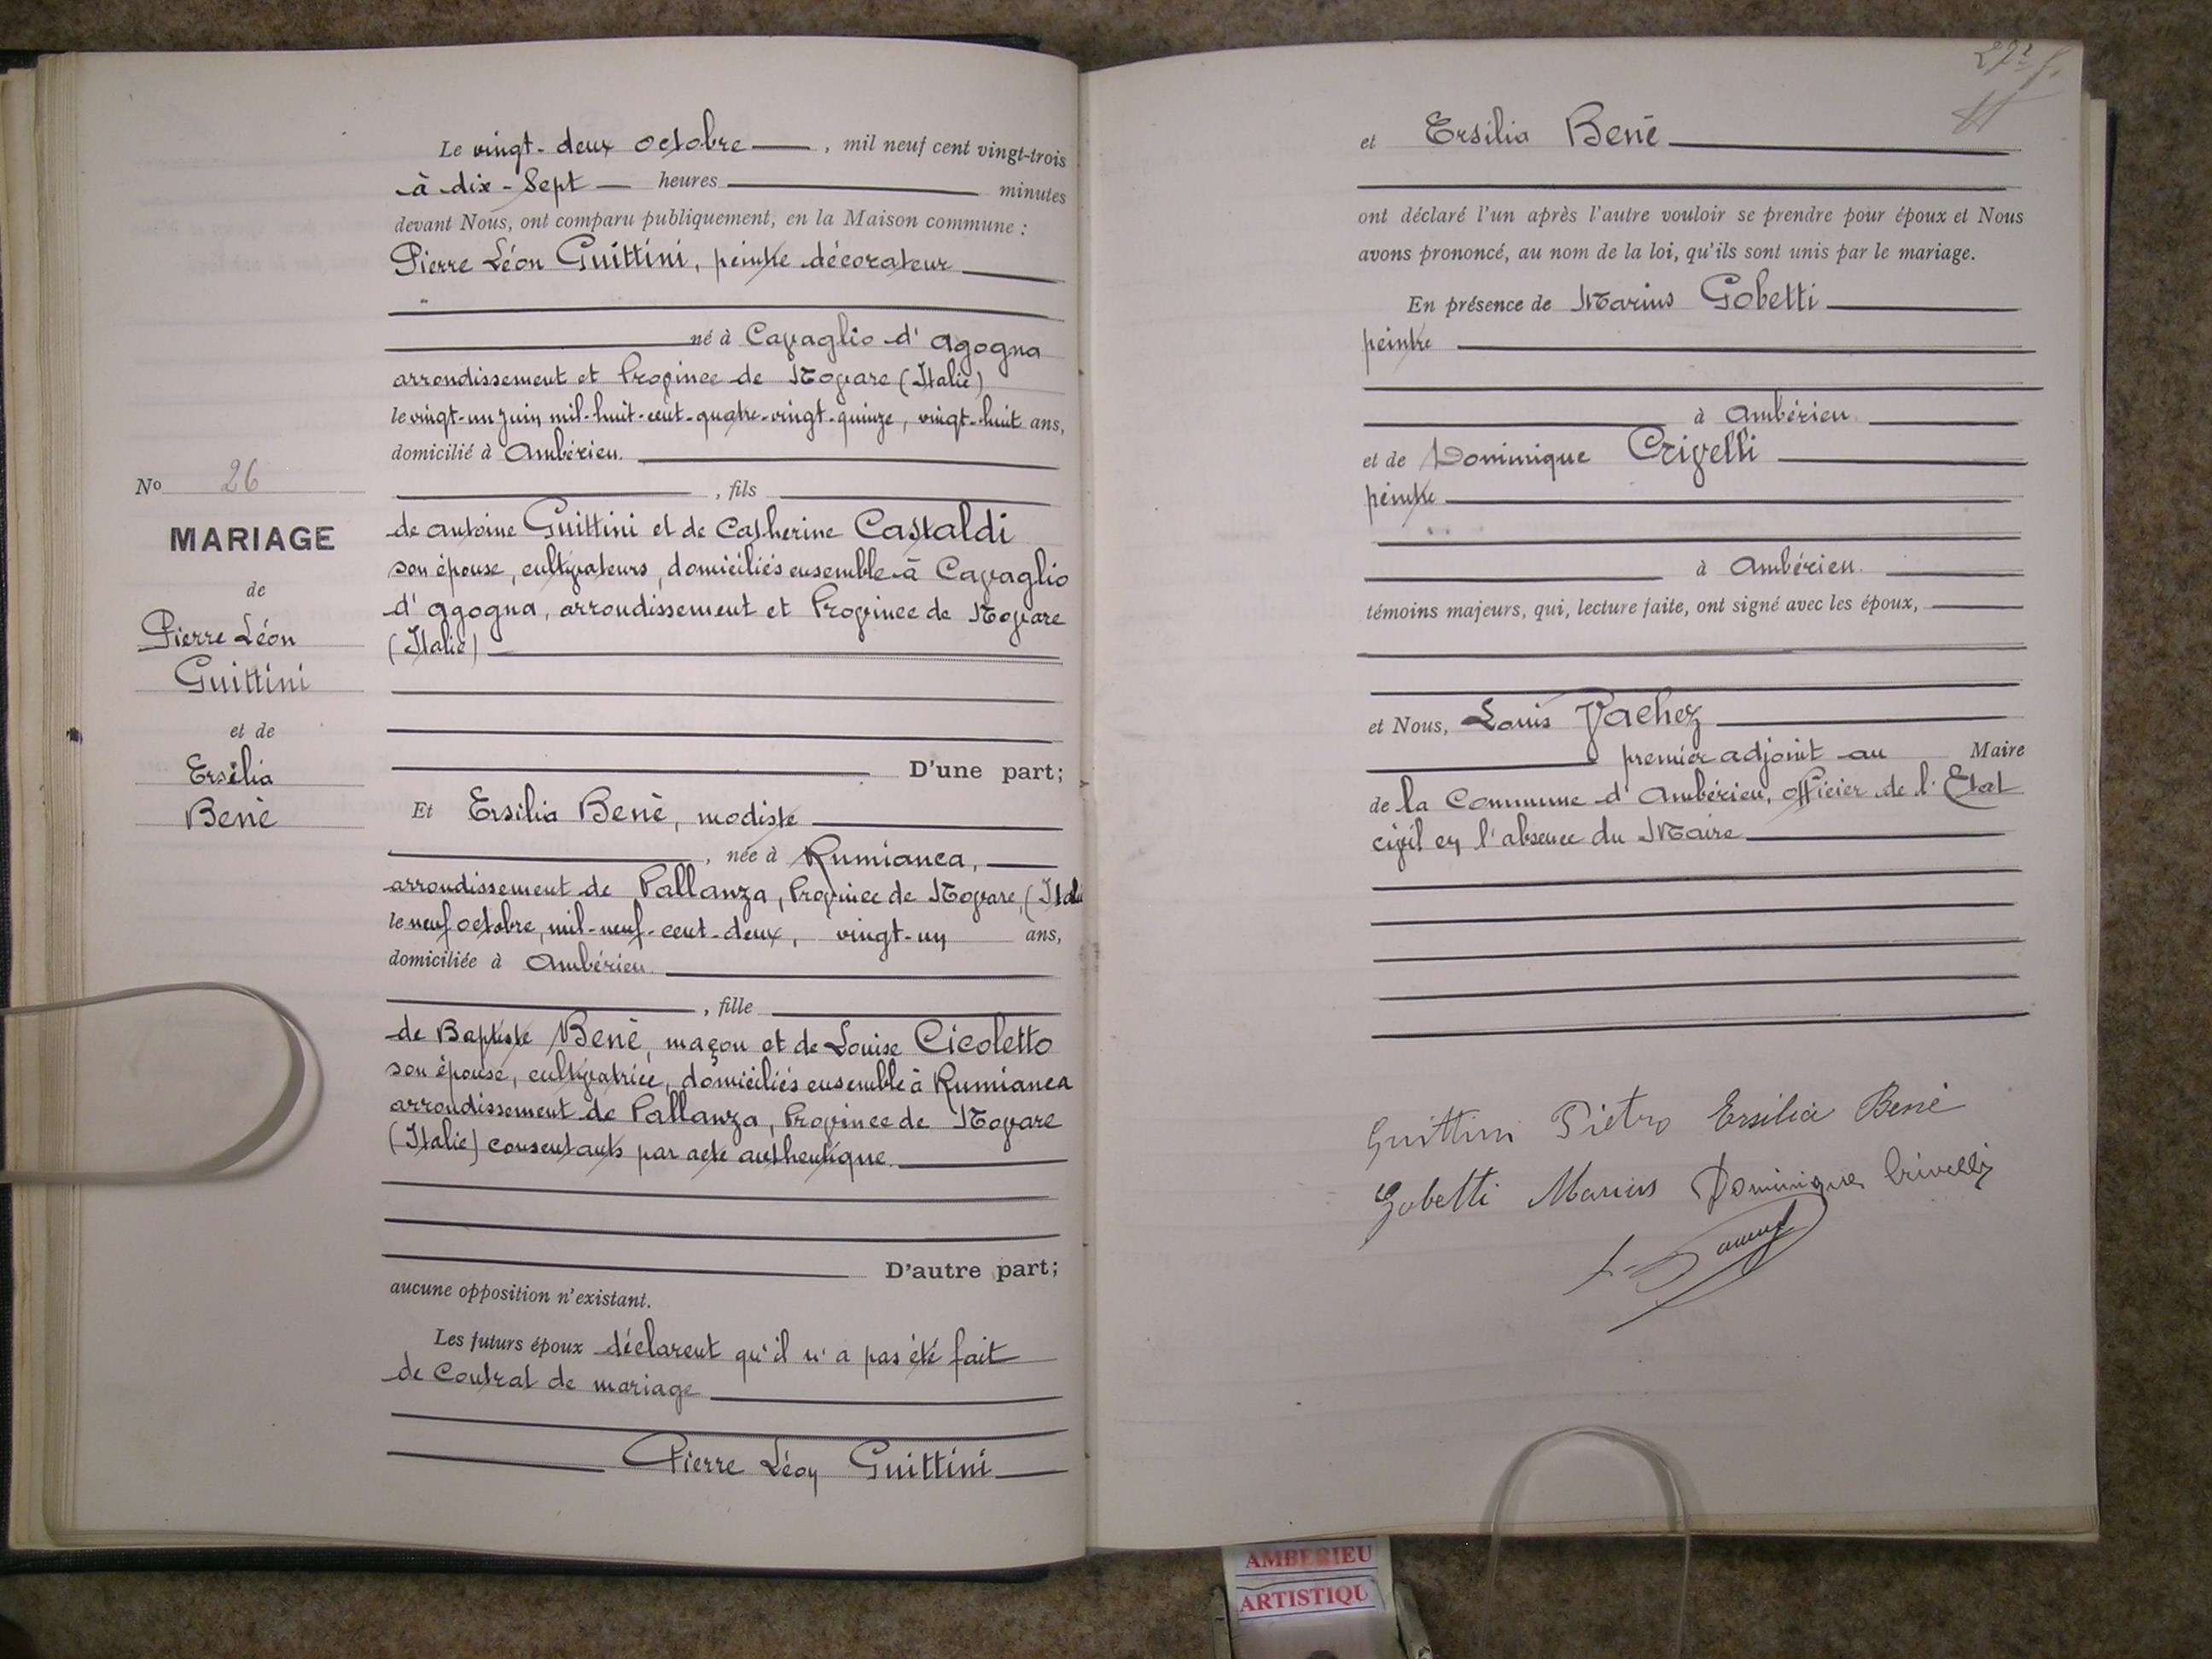 Le vingt-deux octobre, mil neuf cent vingt-trois
à dix-sept heures minutes
devant Nous, ont comparu publiquement, en la Maison commune :
Pierre Léon Guittini, peintre décorateur
né à Cavaglio d'Agogna
arrondissement et Province de Novare (Italie)
le vingt-un juin mil-huit-cent-quatre-vingt-quinze, vingt-huit ans,
domicilié à Ambérieu.
, fils
de Antoine Guittini et de Catherine Castaldi
son épouse, cultivateurs, domiciliés ensemble à Cavaglio
d'Agogna, arrondissement et Province de Novare
(Italie)
D'une part;
Et Ersilia Benè, modiste
, née à Rumianca,
arrondissement de Pallanza, Province de Novare, (Itali
le neuf octobre, mil-neuf-cent-deux, vingt-un ans,
domiciliée à Ambérieu.
, fille
de Baptiste Benè, maçon et de Louise Cicoletto
son épouse, cultivatrice, domiciliés ensemble à Rumianca
arrondissement de Pallanza, Province de Novare
(Italie) consentants par acte authentique.
D'autre part;
aucune opposition n'existant.
Les futurs époux déclarent qu'il n'a pas été fait
de Contrat de mariage
Pierre Léon Guittini
No 26
MARIAGE
de
Pierre Léon
Guittini
et de
Ersilia
Benè
et Ersilia Benè
ont déclaré l'un après l'autre vouloir se prendre pour époux et Nous
avons prononcé, au nom de la loi, qu'ils sont unis par le mariage.
En présence de Marius Gobetti
peintre
à Ambérieu
et de Dominique Crivelli
peintre
à Ambérieu.
témoins majeurs, qui, lecture faite, ont signé avec les époux,
et Nous, Louis Vachez
premier adjoint au Maire
de la Commune d'Ambérieu, officier de l'Etat
civil en l'absence du Maire
Guittini Pietro Ersilia Benè
Gobetti Marius Dominique Crivelli
AMBERIEU
ARTISTIQU